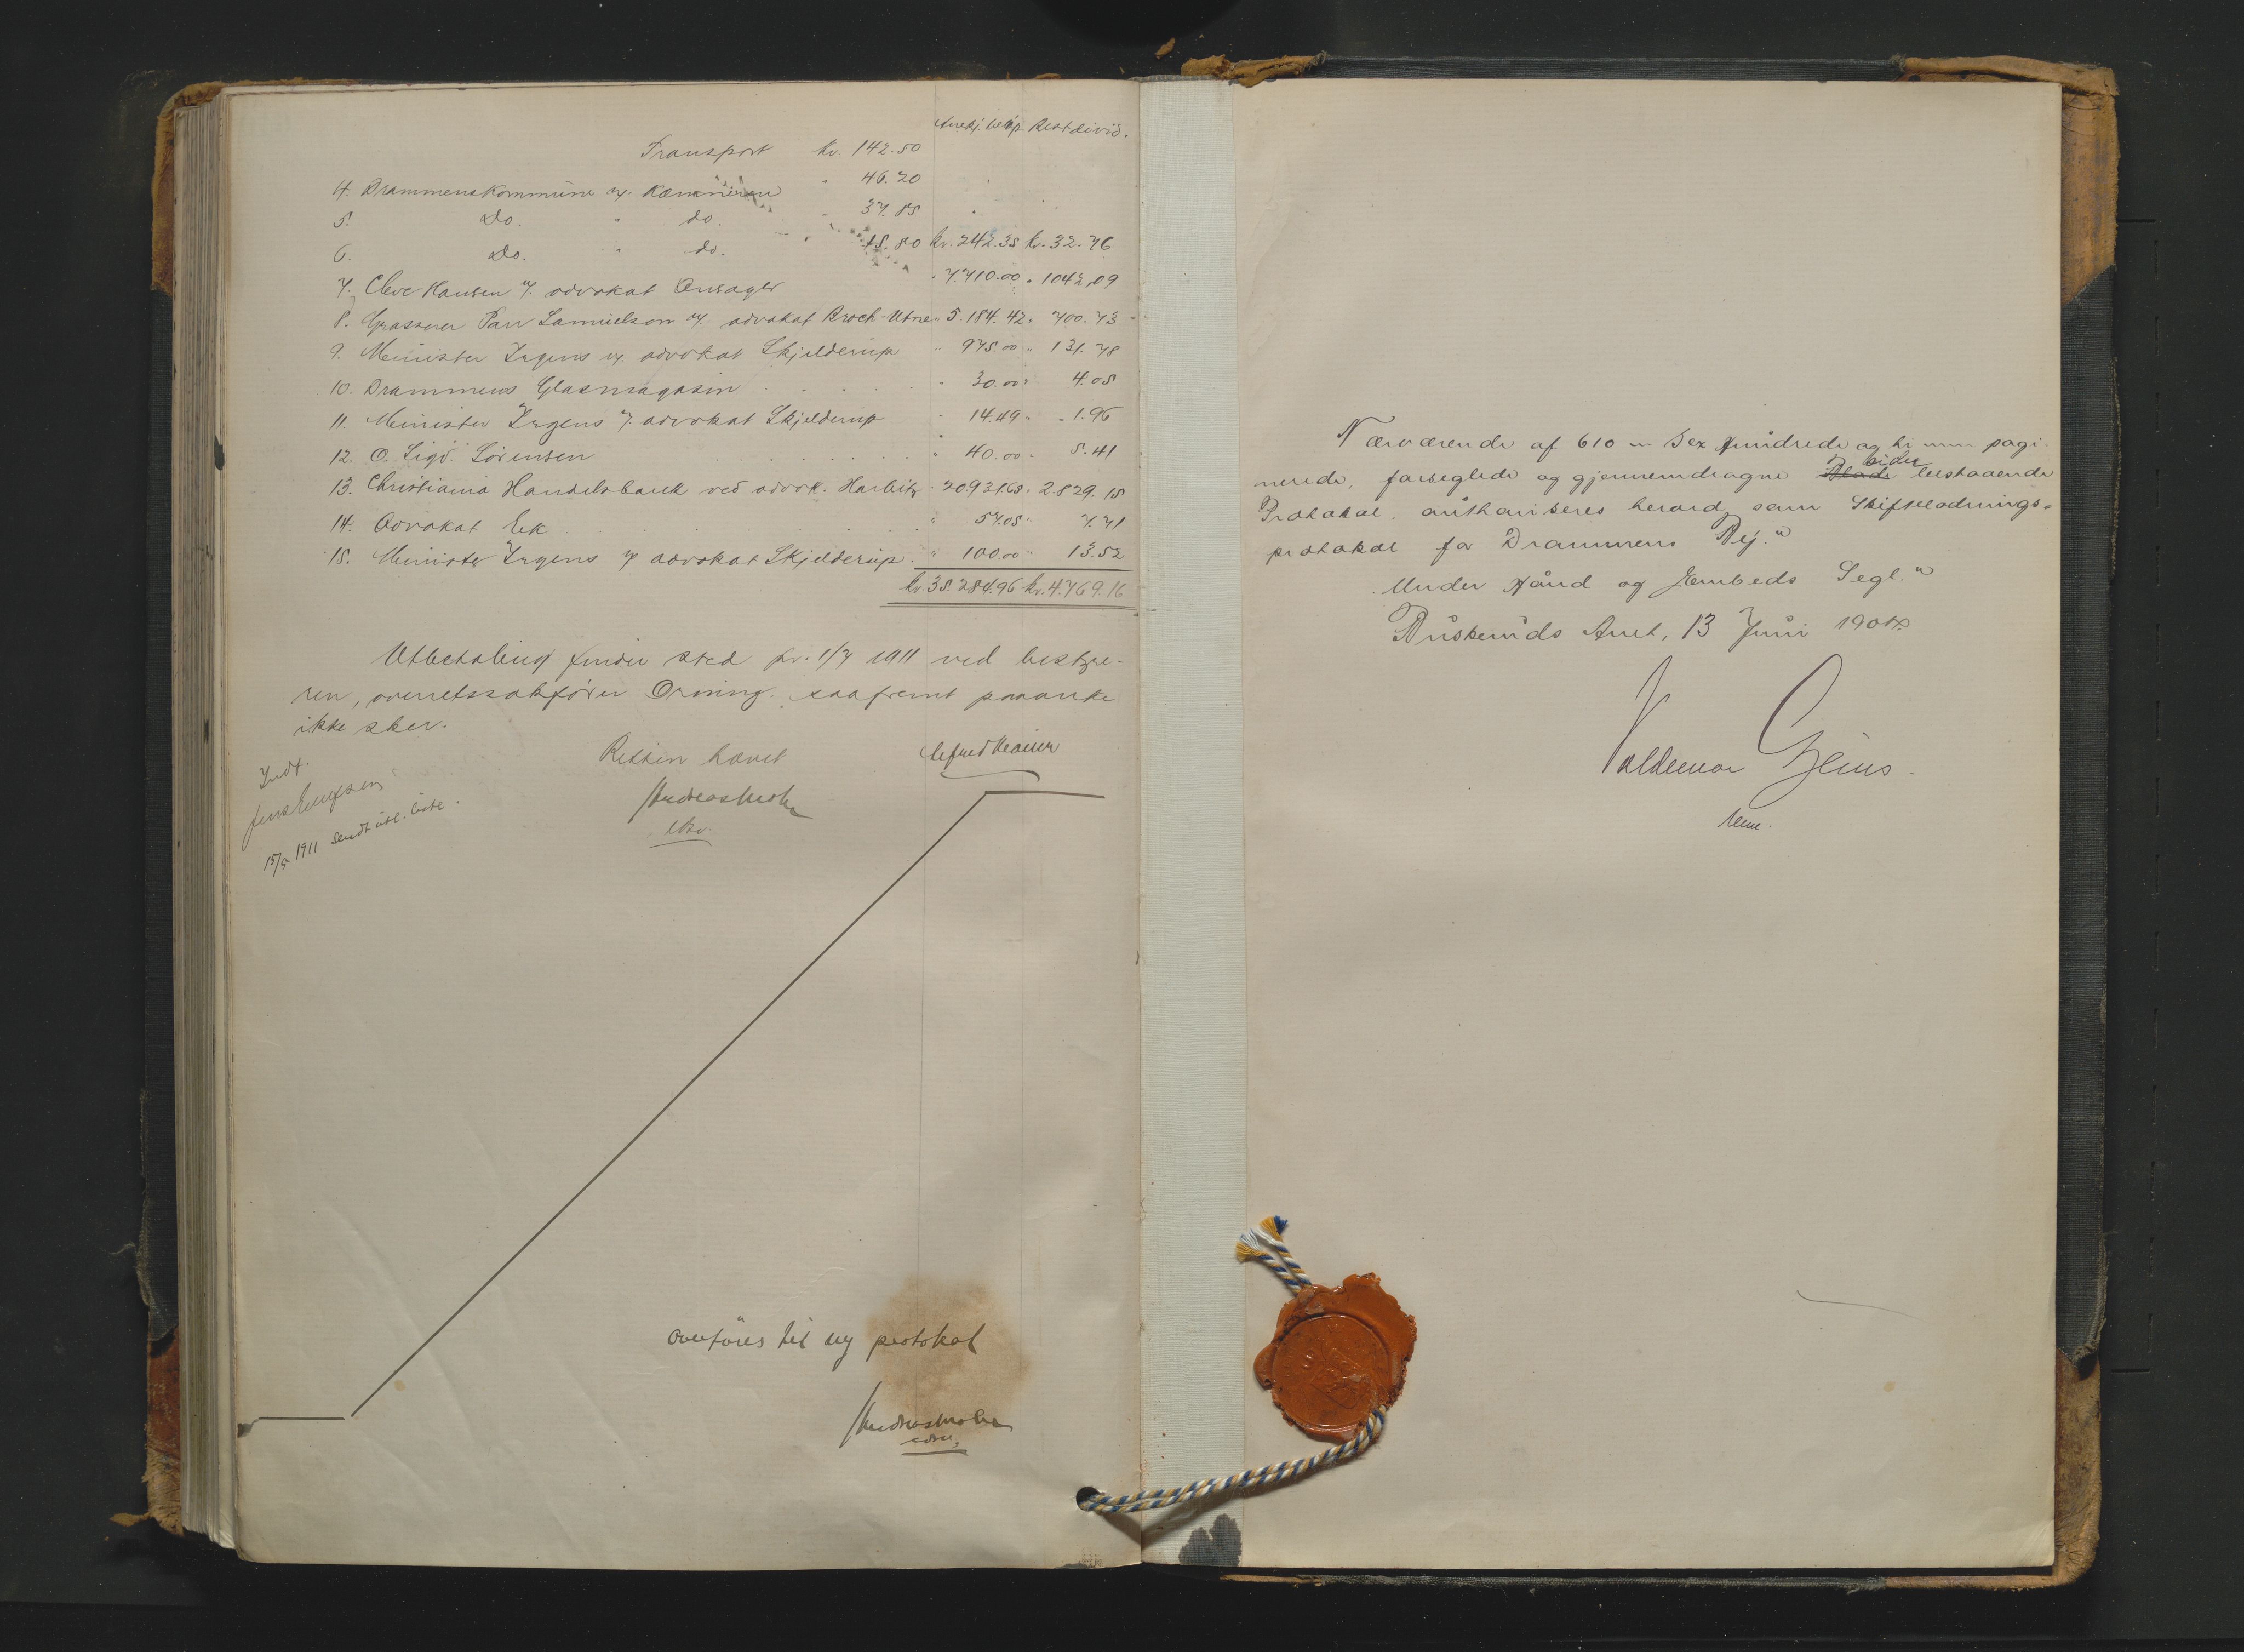 Anerkj. beløp Restdivid.
Transport kr. 142.50
4. Drammens Kommune v. Kæmneren " 46.20
5. Do. " do. " 37.85
6. Do. " do. " 15.80 kr. 242.35 kr. 32.76
7. Cleve Hansen v. advokat Ansager " 7.710.00 " 1042,09
8. Grosserer Pau Samuelson v. advokat Broch-Utne " 5.184.42 " 700.73
9. Minister Irgens v. advokat Skjelderup " 975.00 " 131.78
10. Drammens Glasmagasin " 30.00 " 4.05
11. Minister Irgens v. advokat Skjelderup " 14.49 " 1.96
12. O. Sigv. Sörensen " 40.00 " 5.41
13. Christiania Handelsbank ved advok. Harbitz " 20.931.65 " 2.829.15
14. Advokat Eek " 57.05 " 7.71
15. Minister Irgens v advokat Skjelderup " 100.00 " 13.52
kr. 35.284.96 kr. 4.769.16
Utbetaling finder sted pr. 1/7 1911 ved bestyre-
ren, overretssakförer Orning. saafremt paaanke
ikke sker.
Retten hævet
Indf.
15/5 1911 sendt utl. liste.
overföres til ny protokol
Nærværende af 610 = Sex Hundrede og ti = pagi
nerede, forseglede og gjennemdragne Blade sider bestaaende
Protokol, authoriseres herved som Skifteudlodnings-
protokol for Drammens Bej."
Under Haand og Embeds Segl."
Buskeruds Amt, 13 Juni 1904.
Valdemar